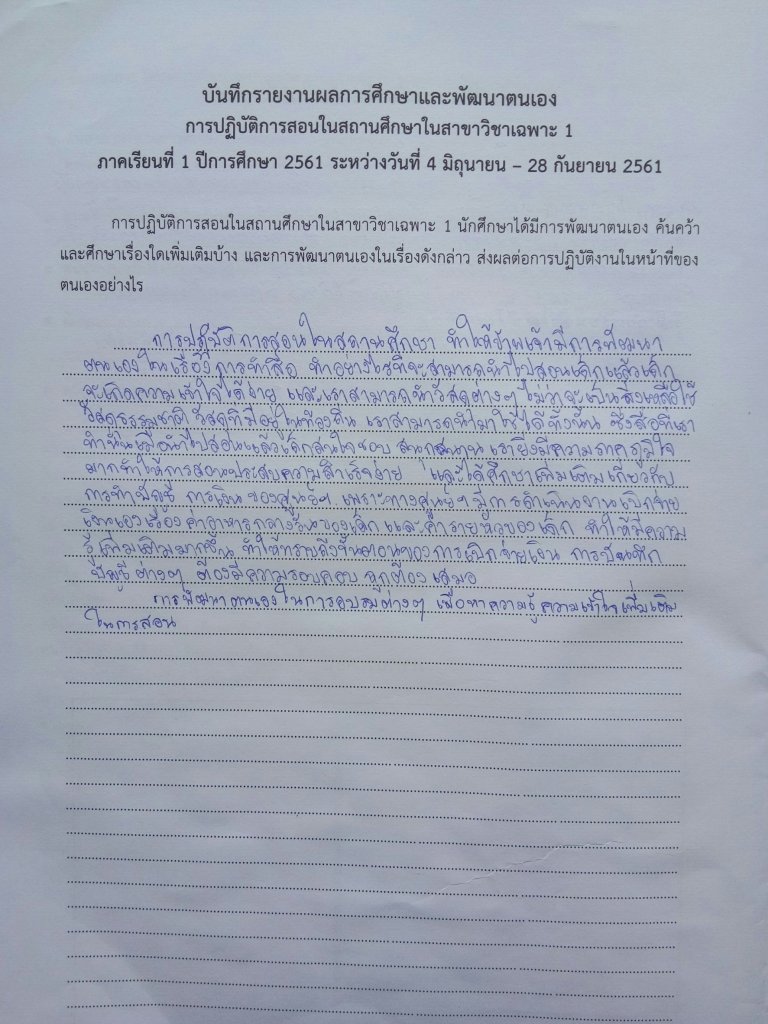 บันทึกรายงานผลการศึกษาและพัฒนาตนเอง
การปฏิบัติการสอนในสถานศึกษาในสาขาวิชาเฉพาะ 1
ภาคเรียนที่ 1 ปีการศึกษา 2561 ระหว่างวันที่ 4 มิถุนายน – 28 กันยายน 2561
การปฏิบัติการสอนในสถานศึกษาในสาขาวิชาเฉพาะ 1 นักศึกษาได้มีการพัฒนาตนเอง ค้นคว้า
และศึกษาเรื่องใดเพิ่มเติมบ้าง และการพัฒนาตนเองในเรื่องดังกล่าว ส่งผลต่อการปฏิบัติงานในหน้าที่ของ
ตนเองอย่างไร
การปฏิบัติการสอนในสถานศึกษา ทำให้ข้าพเจ้ามีการพัฒนา
ตนเองในเรื่องการทำสื่อ ทำอย่างไรที่จะสามารถนำไปสอนเด็กแล้วเด็ก
จะเกิดความเข้าใจได้ง่าย และเราสามารถนำวัสดุต่างๆ ไม่ว่าจะเป็นสิ่งเหลือใช้
วัสดุธรรมชาติ วัสดุที่มีอยู่ในท้องถิ่น เราสามารถนำมาใช้ได้ทั้งนั้น ซึ่งสื่อที่เรา
ทำนั้นเมื่อนำไปสอนแล้วเด็กสนใจชอบ สนุกสนาน เรายิ่งมีความภาคภูมิใจ
มากทำให้การสอนประสบความสำเร็จง่าย และได้ศึกษาเพิ่มเติมเกี่ยวกับ
การทำบัญชี การเงินของศูนย์ฯ เพราะทางศูนย์ฯ มีการดำเนินงานเบิกจ่าย
เงินเองเรื่องค่าอาหารกลางวันของเด็ก และค่ารายหัวของเด็ก ทำให้มีความ
รู้เพิ่มเติมมากขึ้น ทำให้ทราบถึงขั้นตอนของการเบิกจ่ายเงิน การบันทึก
บัญชีต่างๆ ต้องมีความรอบคอบ ถูกต้องเสมอ
การพัฒนาตนเองในการอบรมต่างๆ เพื่อหาความรู้ ความเข้าใจเพิ่มเติม
ในการสอน